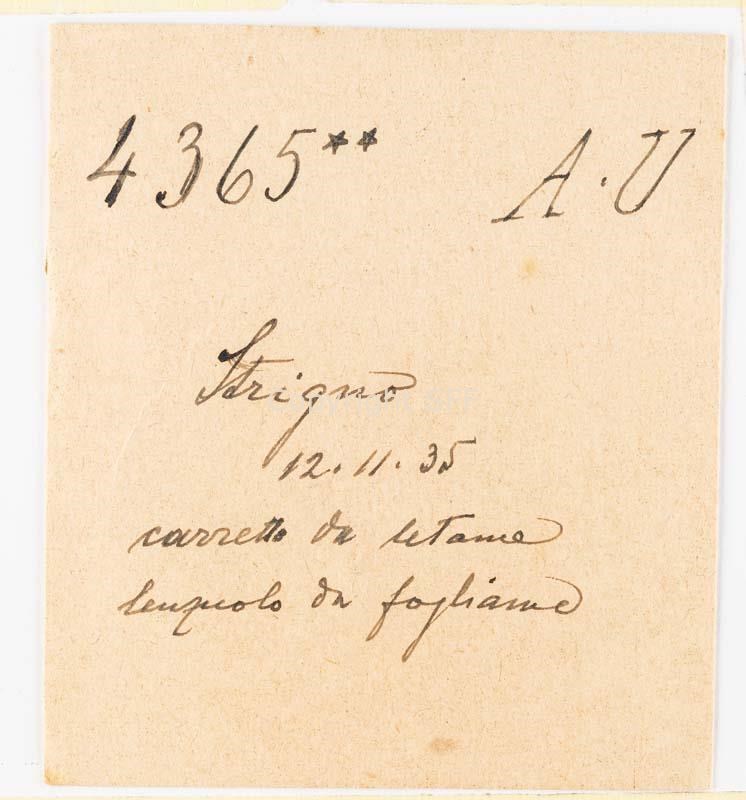 4365** A.U
Strigno
12.11.35
carretto da letame
lenzuolo da fogliame